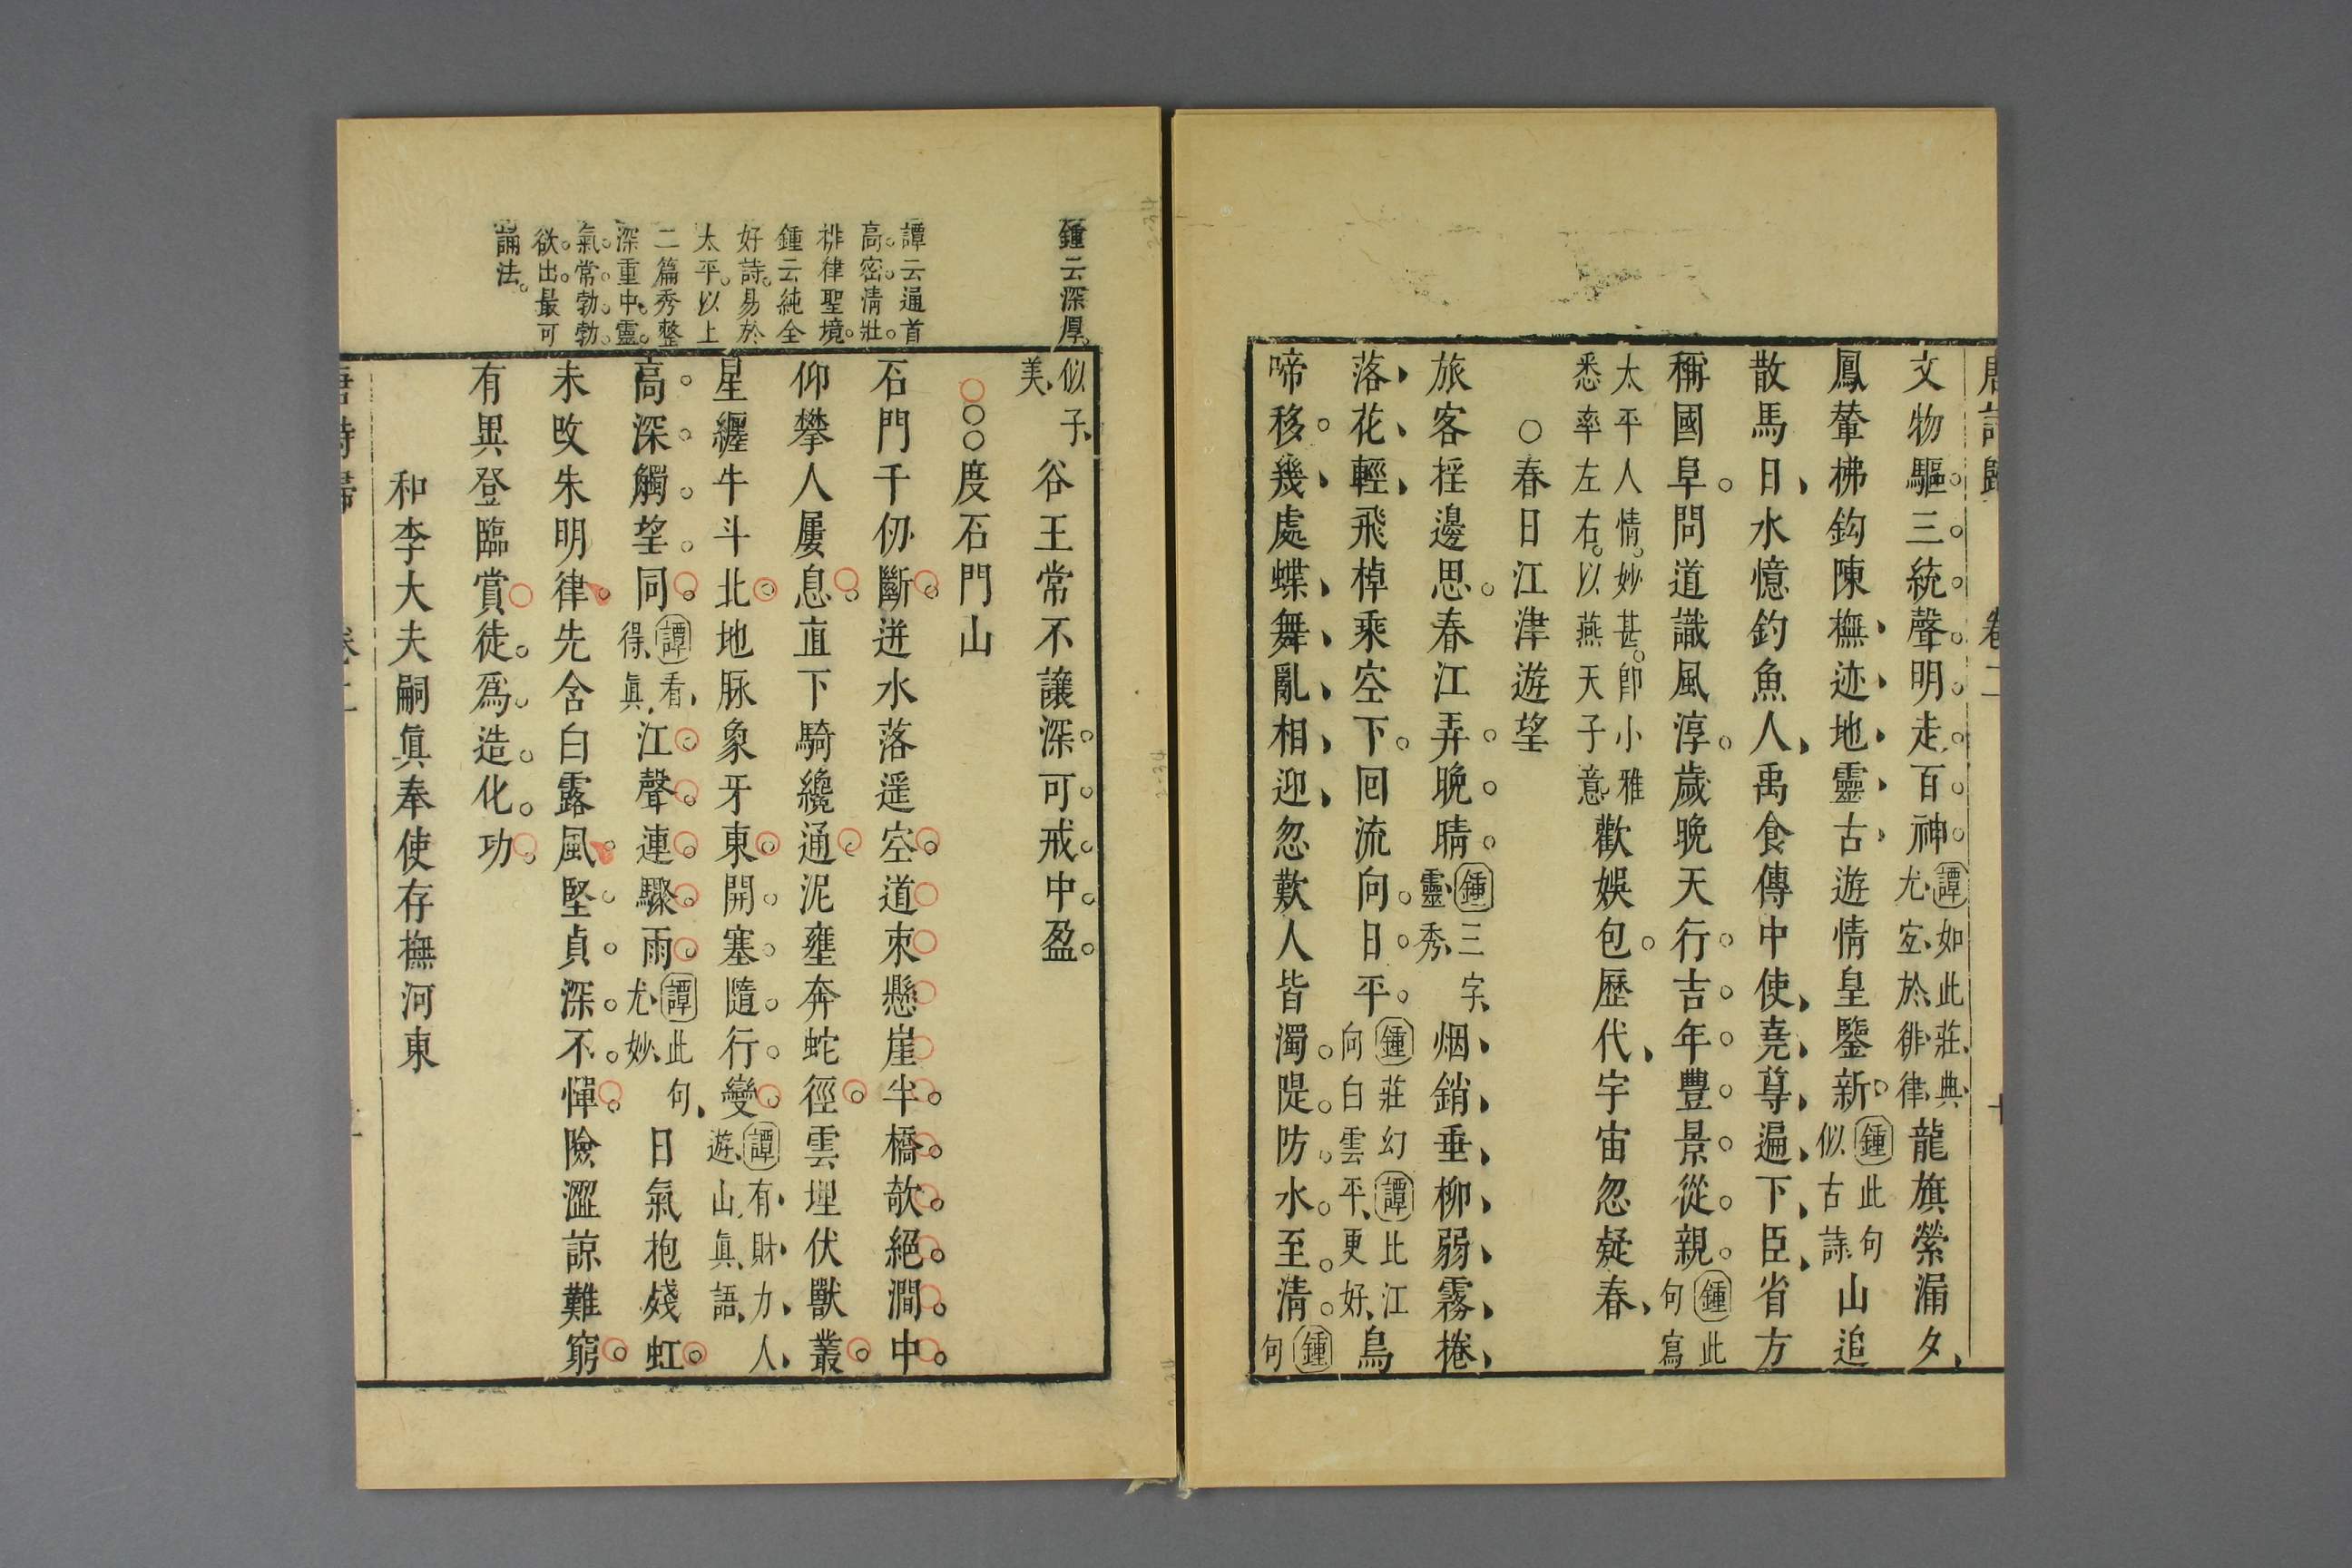 唐詩歸 卷二 十
文物驅三統聲明走百神譚如此莊典尤宜於徘律龍旗縈漏夕
鳳輦拂鈎陳撫迹地靈古遊情皇鑒新鍾此句似古詩山追
散馬日水憶釣魚人禹食傳中使堯尊遍下臣省方
稱國阜問道識風淳歲晚天行吉年豐景從親鍾此句寫
太平人情妙甚卽小雅悉率左右以燕天子意歡娛包歷代宇宙忽疑春
○春日江津遊望
旅客揺邊思春江弄晩晴鍾三字靈秀烟銷垂柳弱霧捲
落花輕飛棹乘空下回流向日平鍾莊幻向白雲平更好譚比江鳥
啼移幾處蝶舞亂相迎忽歎人皆濁隄防水至清鍾句
鍾云深厚
似子美谷王常不讓深可戒中盈
○○○度石門山
譚云通首
高密淸壯
排律聖境
鍾云純全
好詩易於
太平以上
二篇秀整
深重中靈
氣常勃勃
欲出最可
誦法
石門千仞斷迸水落遥空道束懸崖半橋欹絕澗中
仰攀人屢息直下騎纔通泥壅奔蛇徑雲埋伏獸叢
星纏牛斗北地脉象牙東開塞隨行變譚有財力人遊山眞語
高深觸望同譚看得眞江聲連驟雨譚此句尤妙日氣抱殘虹
未改朱明律先含白露風堅貞深不憚險澀諒難窮
有異登臨賞徒爲造化功
和李大夫嗣眞奉使存撫河東